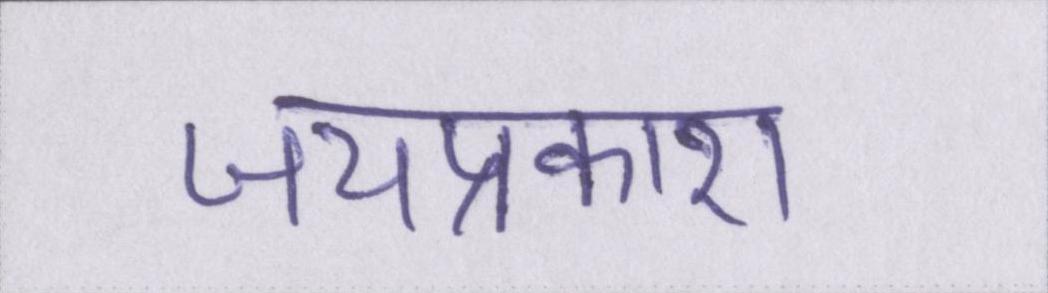 जयप्रकाश